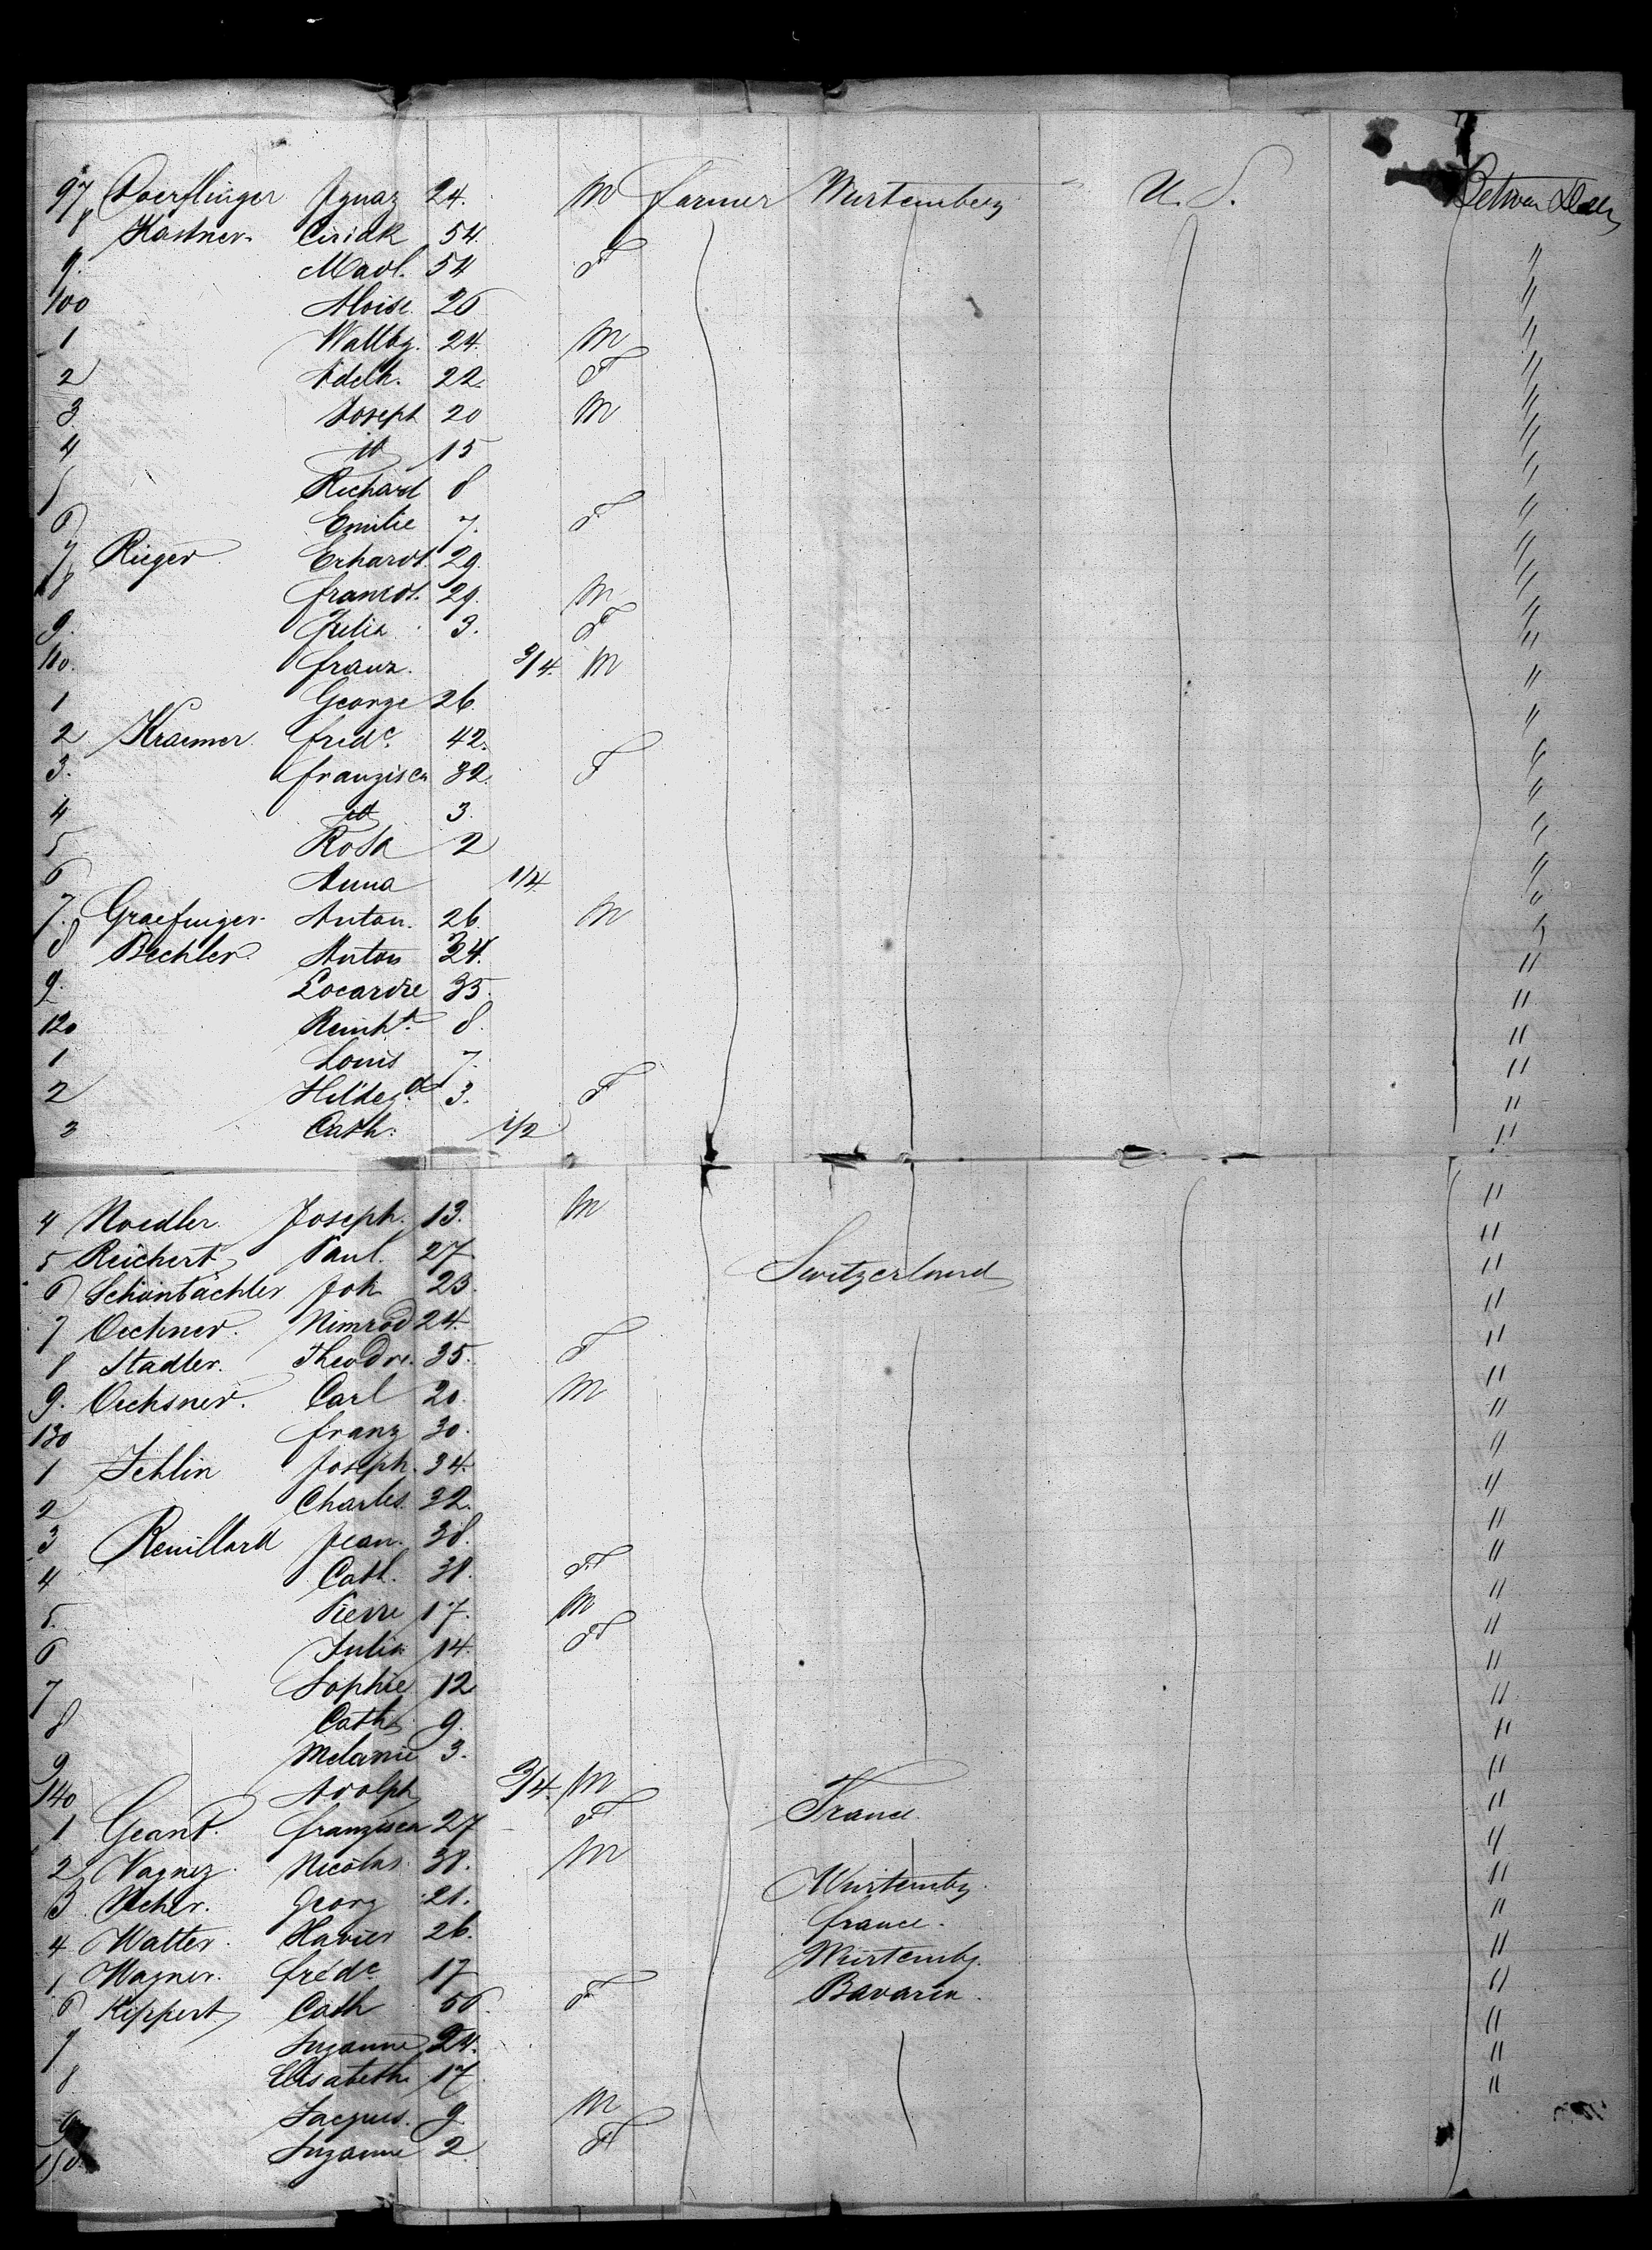 97 Doerflinger Ignaz 24. M Farmer Wurtemberg U. S. Between Decks
8 Kastner Ciriak 54. "
9. Madl. 54 F "
100 Aloise 26 "
1 Wallbg. 24. M "
2 Adelh. 22. F "
3 Joseph 20 M "
4 id 15 "
5 Richard 8 "
6 Emilie 7. F "
7 Rieger Erhardt 29. "
8 29. M "
9. Julia 3. F "
110. Franz. 3/4. M "
1 George 26. "
2 Kraemer Fredc. 42. "
3. Franzisca 32. F "
4 id 3. "
5 Rosa 2 "
6 Anna 1/4 "
7. Graefinger Anton. 26. M "
8 Bechler Anton 34. "
9. Locardie 35. "
120 Reinht. 8. "
1 Louis 7. "
2 Hildegd. 3. F "
3 Cath: 1/2 "
4 Noedler. Joseph. 13. M "
5 Reichert Paul. 27 "
6 Schönbächler Joh 23. Switzerland "
7 Oechner. Nimrod 24. "
8 Stadler. Theodre. 35. F "
9. Oechsner. Carl 20. M "
130 Franz 30. "
1 Jehlin Joseph. 34. "
2 Charles. 32. "
3 Revillard Jean. 38. "
4 Cath. 38. F "
5. Pierre 17. M "
6 Julia 14. F "
7 Sophie 12 "
8 Cath 9. "
9 Melanie 3. "
140 Adolph 3/4. M "
1 Geant. Franzisca 27 F France "
2 Vagnez. Nicolas. 38. M "
3 Neher. Georg 21. Wurtembg. "
4 Walter. Xavier 26. France. "
5 Wagner. Fredc. 17 Wurtembg. "
6 Kippert Cath 56. F Bavaria. "
7 Suzanne 24. "
8 Elisabeth 17 "
9 Jacques. 9 M
150 Suzanne 2. F